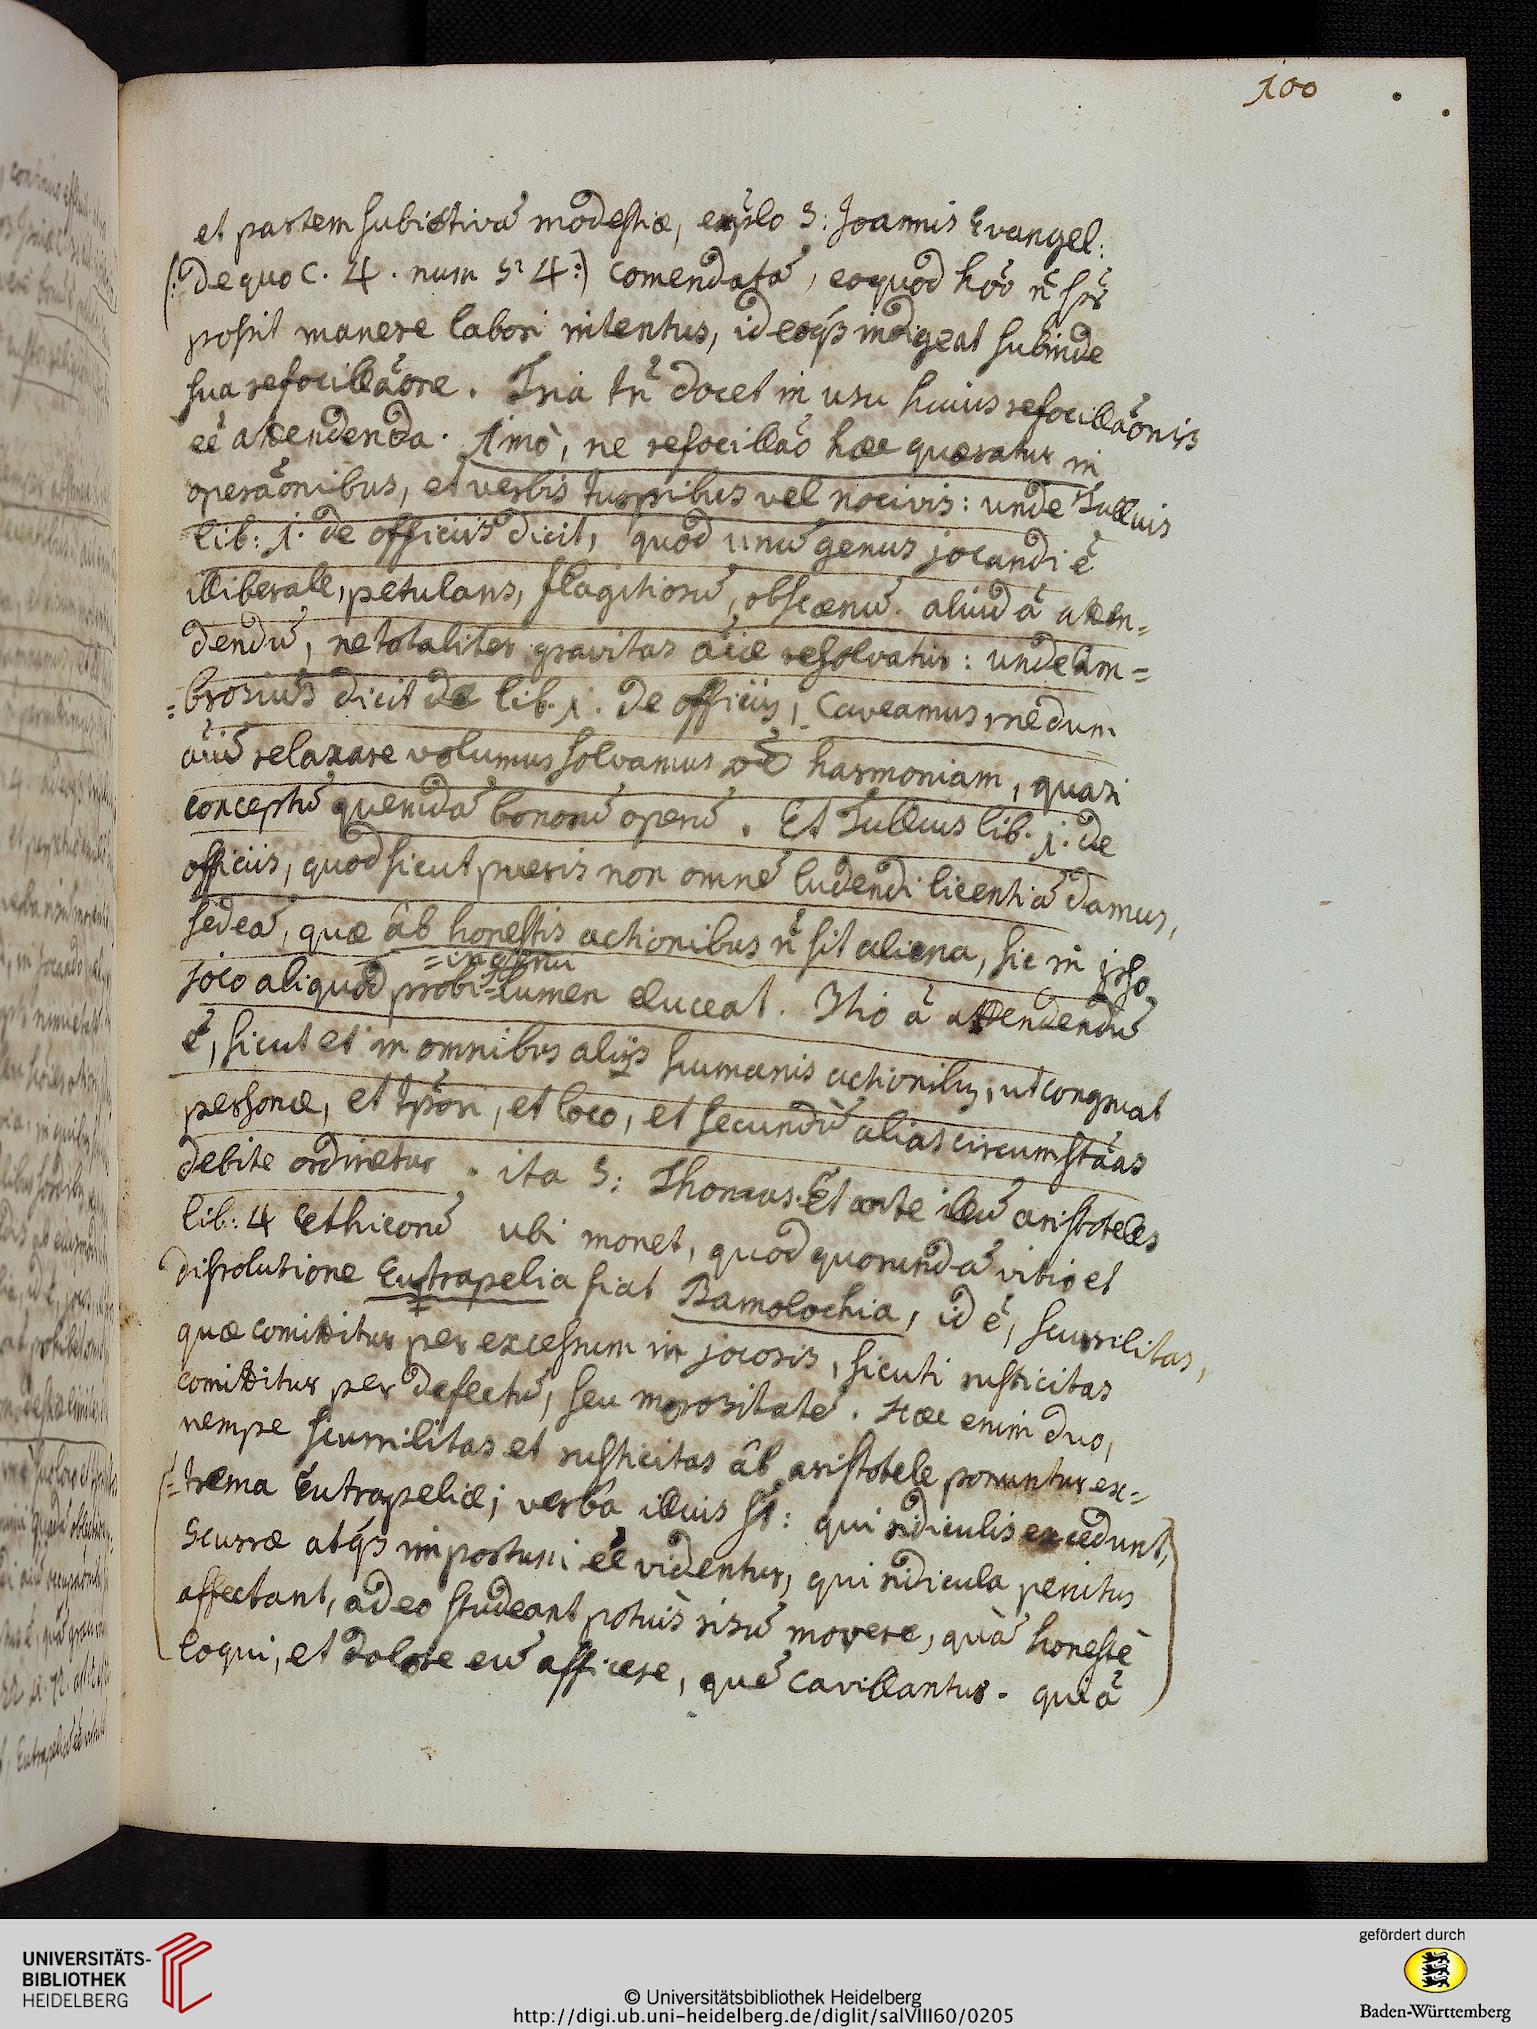 100
et partem subiectivã modestiæ, exp̃lo S: Joannis Evangel:
(: de quo C. 4. num 514 :) comendatã, eoquod hõo ñ s̃p̃r
possit manere labori intentus, ideoq́ꝫ indigeat subinde
sua refocillãore. Tria tñ docet in usu huius refocillãonis
eẽ attendenda. 1mò, ne refocillão hæc quæratur in
operãonibus, et verbis turpibus vel nocivis: unde Tullius
lib: 1. de officiis dicit, quod unũ genus jocandi ẽ
illiberale, petulans, flagitiosũ, obscænũ. aliud ã atten=
dendũ, ne totaliter gravitas aĩæ resolvatur: unde Am=
=brosius dicit lib. 1. de officiis, Caveamus, ne dum
aĩũ relaxare volumus solvamus oẽ harmoniam, quasi
conceptũ quemdã bonorũ operũ. Et Tullius lib. 1. de
officiis, quod sicut pueris non omnẽ ludendi licentiã damus,
sed eã, quæ âb honestis actionibus ñ sit aliena, sic in ipso
=ingenii
joco aliquod probi =lumen eluceat. 3tiò ã attendendũ
ẽ, sicut et in omnibus aliis humanis actionibꝫ, ut congruat
personæ, et tp̃ori, et loco, et secundũ alias circumstãas
debite ordinetur. ita S: Thomas. Et ante illũ aristoteles
lib: 4 Ethicorũ ubi monet, quod quorundã vitio et
dissolutione Eutrapelia fiat Bamolochia, id ẽ, scurrilitas,
quæ comittitur per excessum in jocosis, sicuti rusticitas
comittitur per defectũ, seu morositatẽ. Hæc enim duo,
nempe scurrilitas et rusticitas âb aristotele ponuntur ex=
=trema Eutrapeliæ; verba illius st̃: qui ridiculis excedunt,
Scurræ atq́ꝫ importuni eẽ videntur, qui ridicula penitus
affectant, adeo studeant potiùs risũ movere, quã honestè
loqui, et dolore eũ afficere, quẽ cavillantur. quiã
UNIVERSITÄTS-
BIBLIOTHEK
HEIDELBERG
© Universitätsbibliothek Heidelberg
http://digi.ub.uni-heidelberg.de/diglit/salVIII60/0205
gefördert durch
Baden-Württemberg